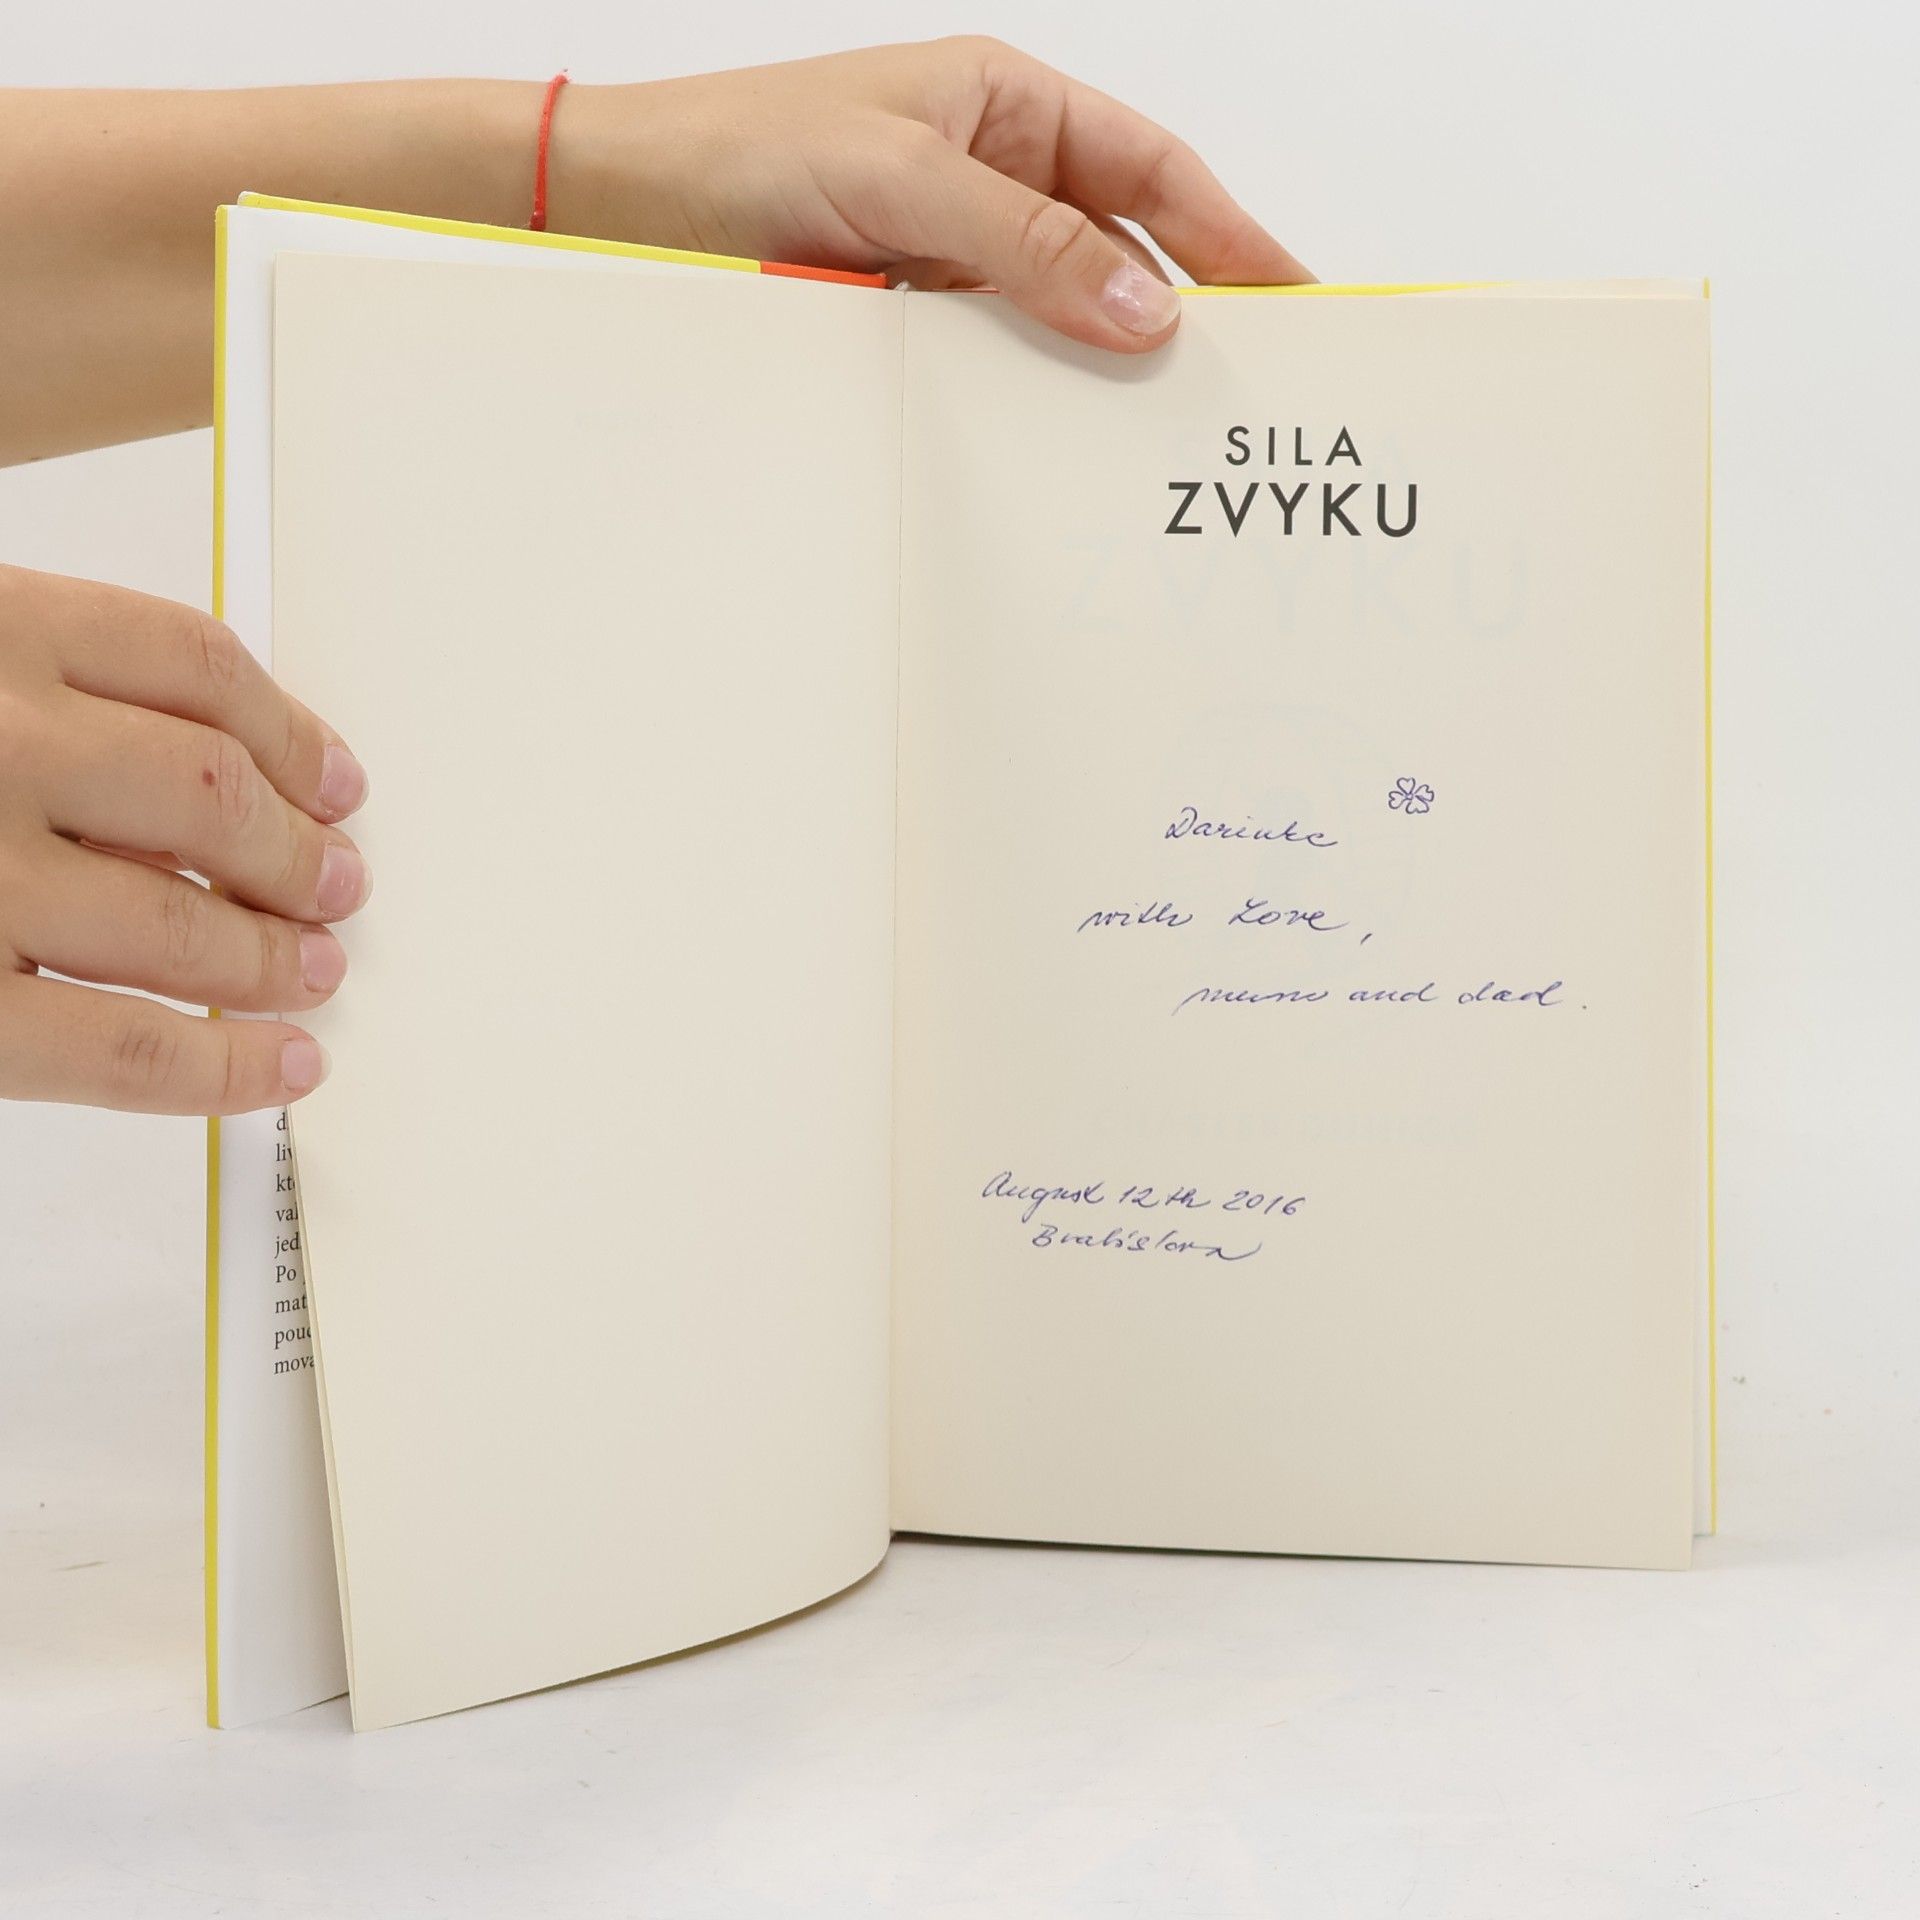 d
liv
kt
val
jed
Po
mat
pouc
mova
SILA
ZVYKU
Darinke
with Love,
mum and dad.
August 12th 2016
Bratislava